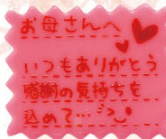 お母さんへ
いつもありがとう
感謝の気持ちを
込めて…